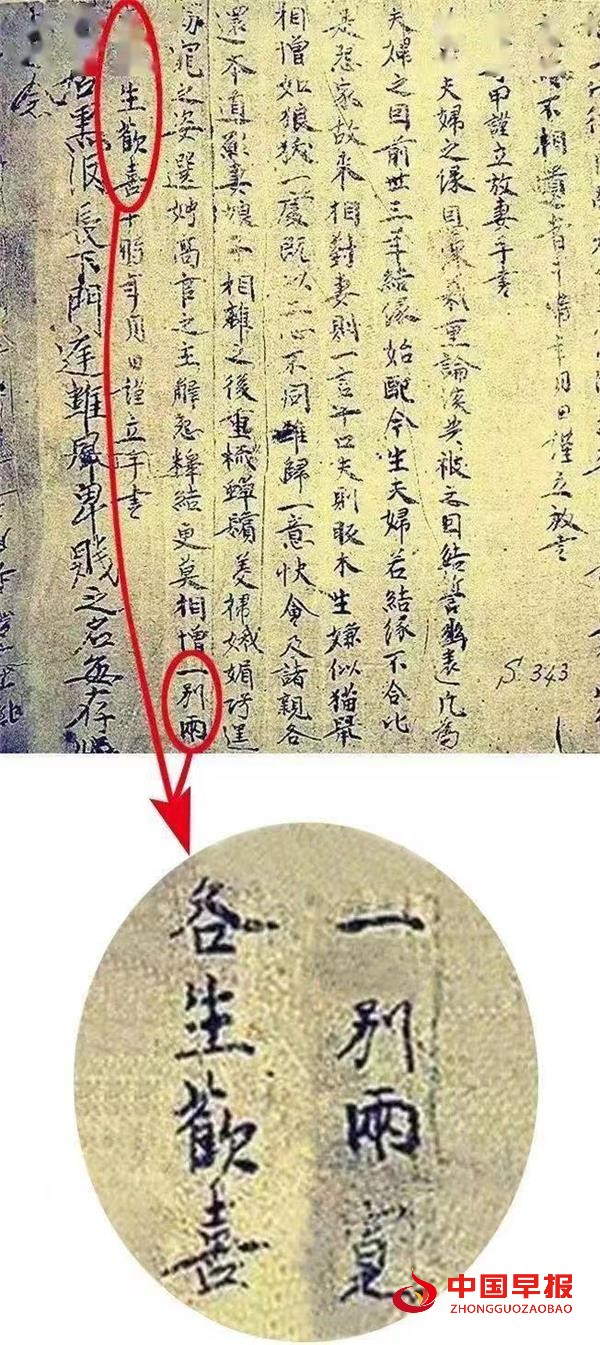 不相
年月日謹立放書
甲謹立放妻手書
夫婦之緣恩深義重論談共被之因結誓幽遠凡為
夫婦之因前世三年結緣始配今生夫婦若結緣不合比
是怨家故來相對妻則一言十口夫則販木生嫌似猫鼠
相憎如狼犺一處既以二心不同難歸一意快會及諸親各
還本道願妻娘子相離之後重梳蟬鬢美掃娥媚巧逞
窈窕之姿選娉高官之主解怨釋結更莫相憎一別兩
生歡喜于時年月日謹立手書
長下門庭雖屬卑賤之名每存
念
S. 343
一別兩寬
各生歡喜
中国早报
ZHONGGUOZAOBAO